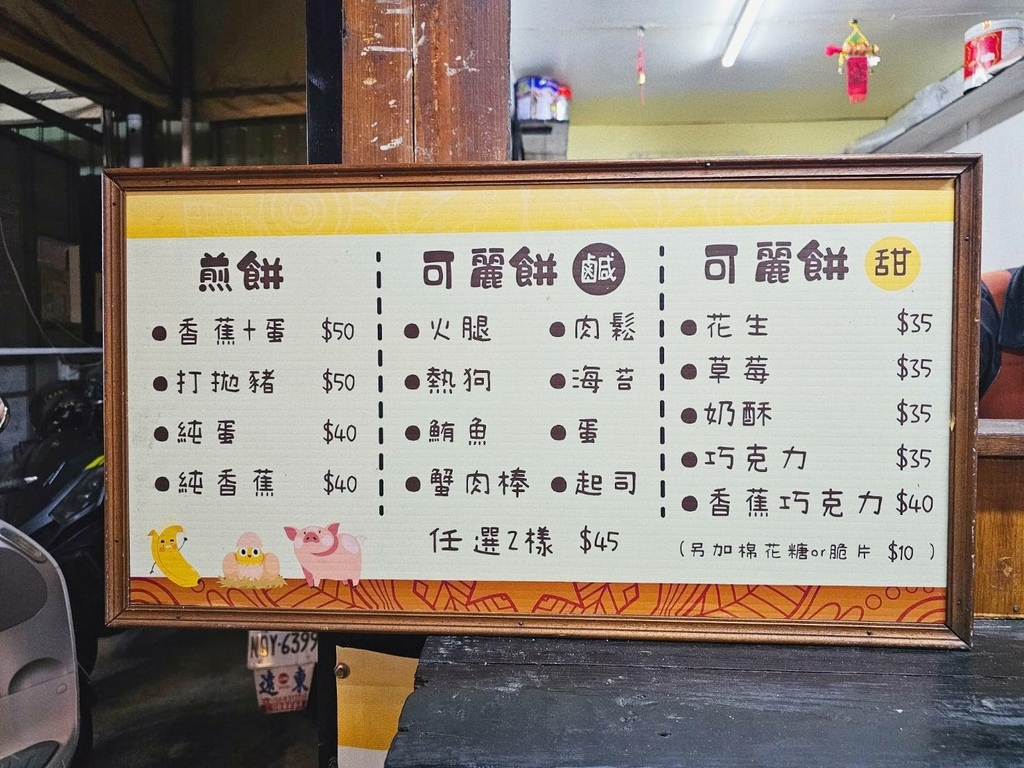 煎餅
香蕉+蛋 $50
打拋豬 $50
純蛋 $40
純香蕉 $40
可麗餅 鹹
火腿
肉鬆
熱狗
海苔
鮪魚
蛋
蟹肉棒
起司
任選2樣 $45
可麗餅 甜
花生 $35
草莓 $35
奶酥 $35
巧克力 $35
香蕉巧克力 $40
(另加棉花糖or脆片 $10 )
NQY-6399
遠東